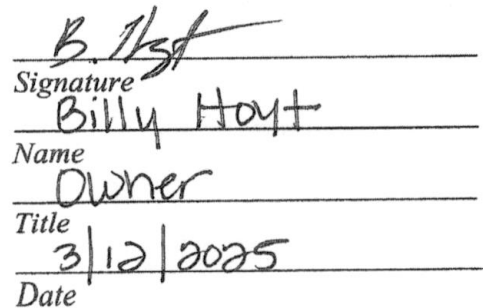 B. Hoyt
Signature
Billy Hoyt
Name
Owner
Title
3|12|2025
Date